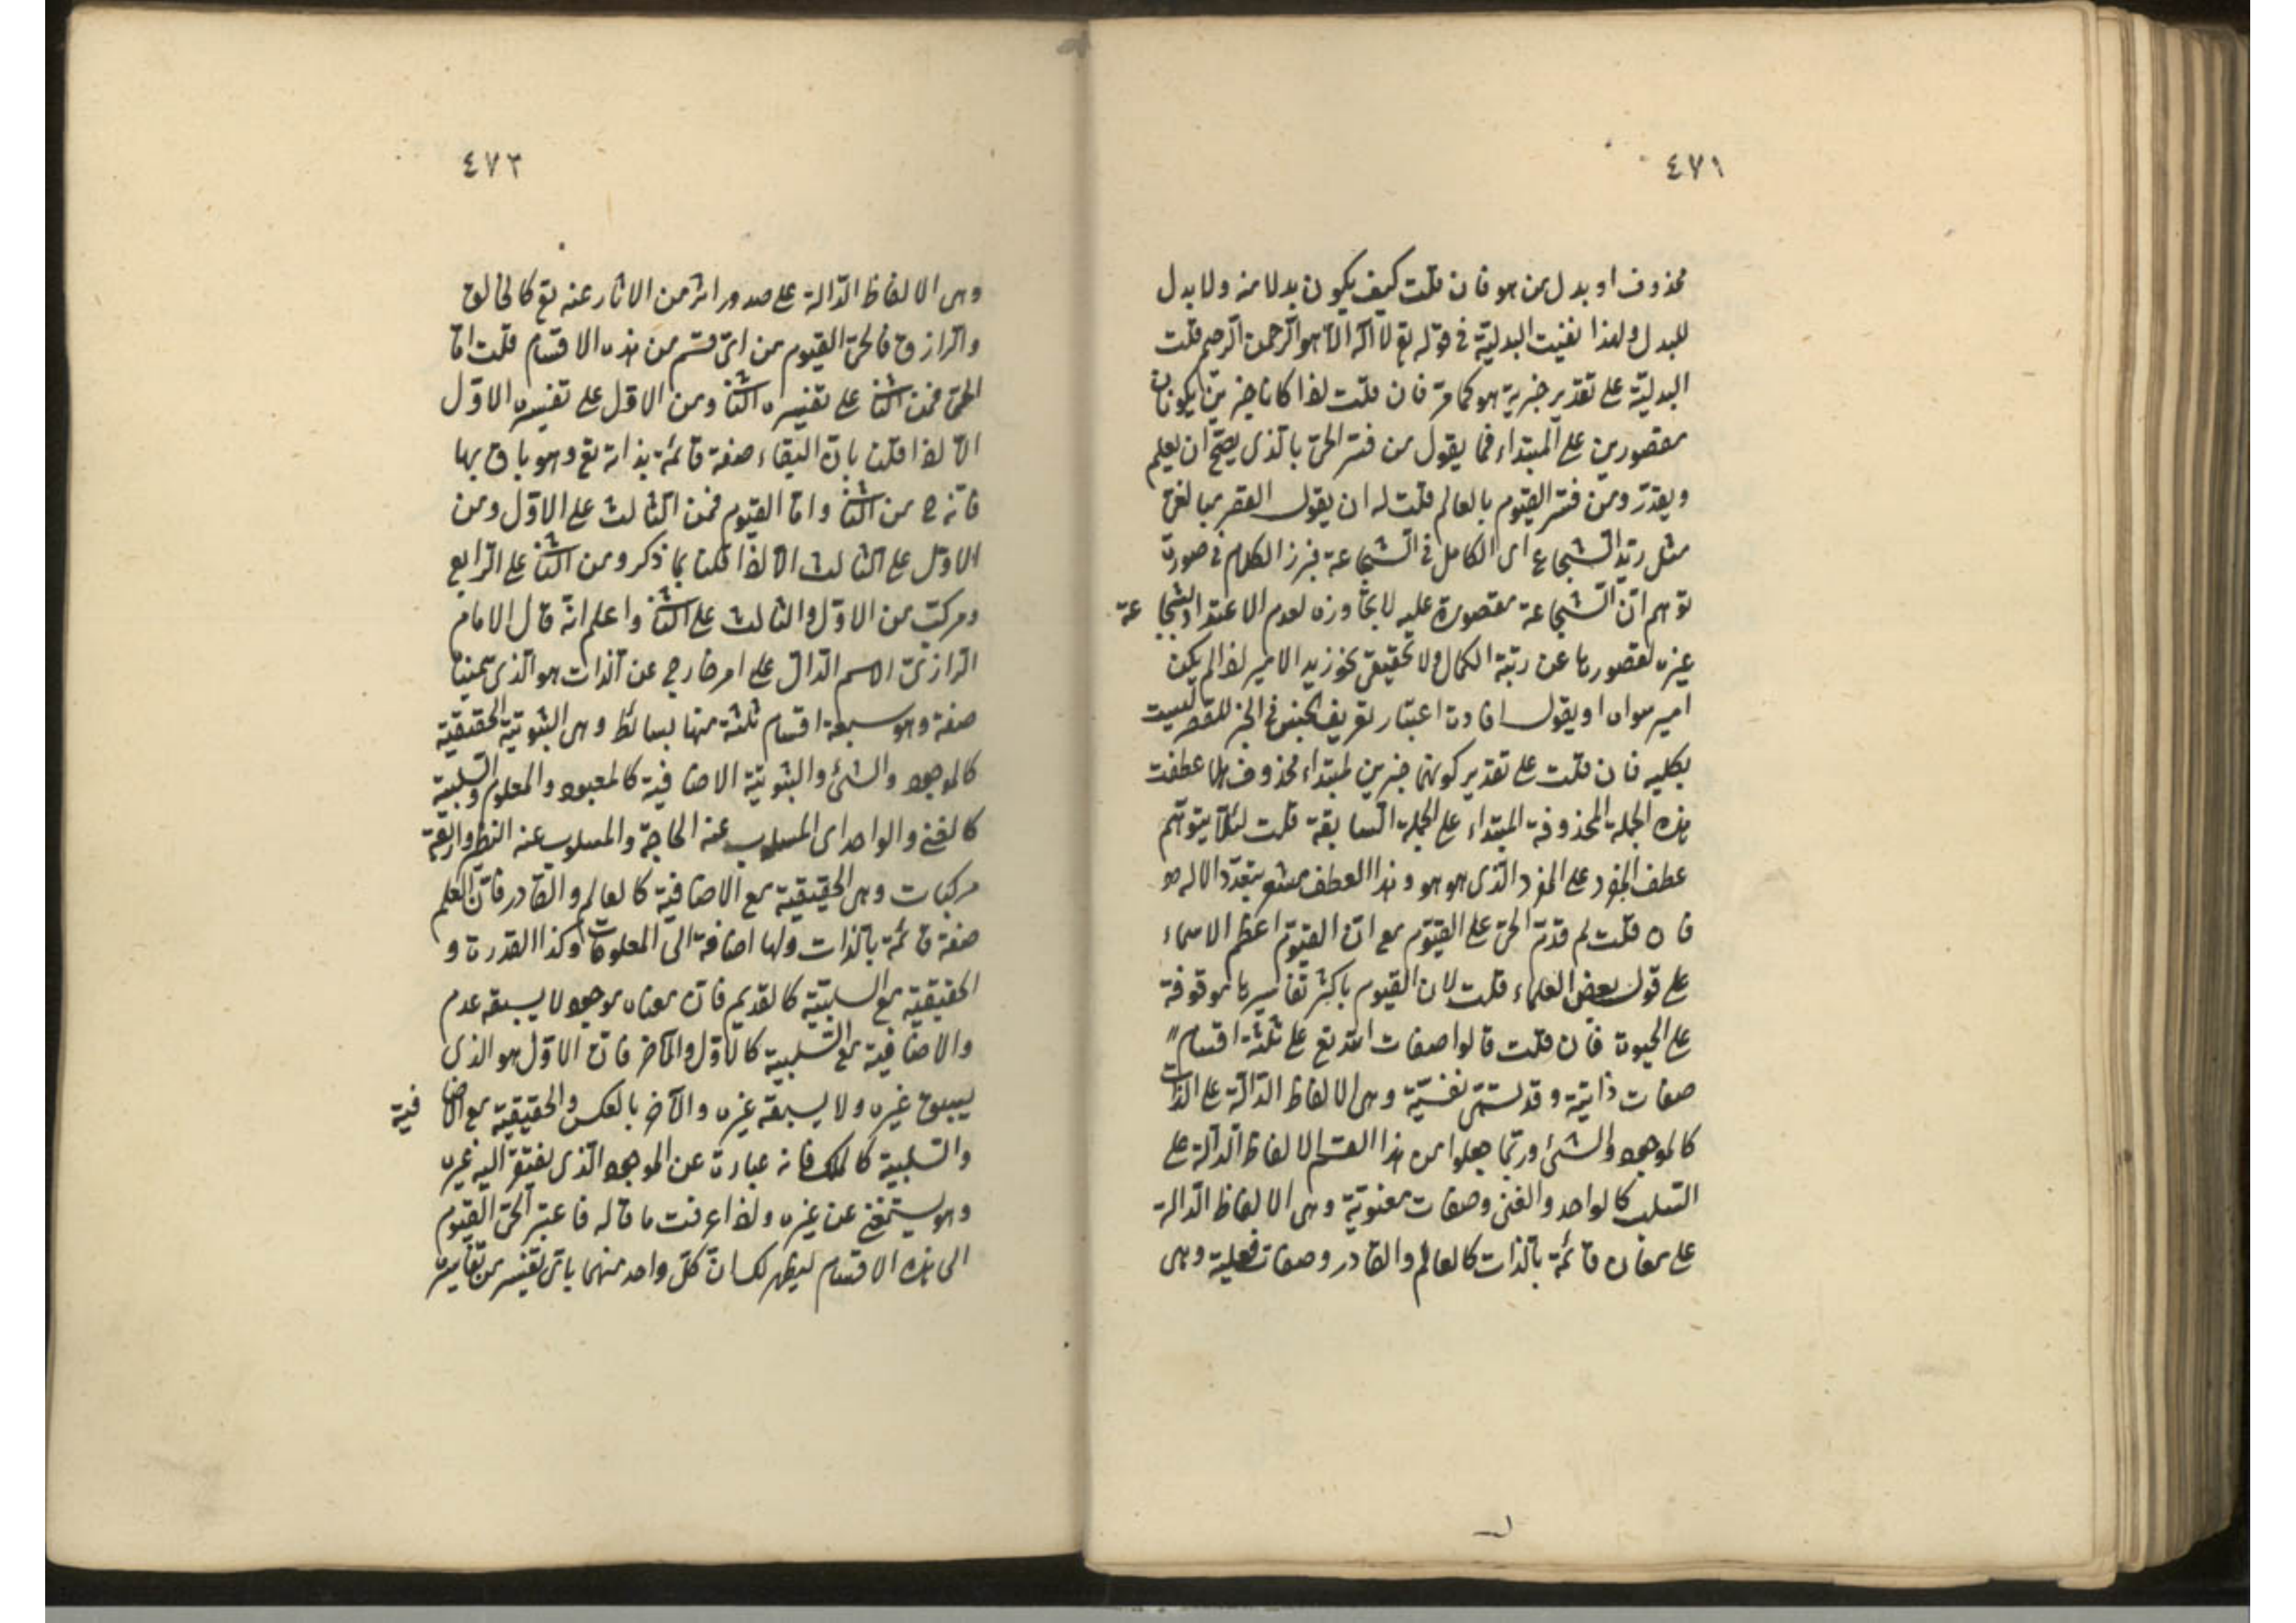 ٤٧١
محذوف او بدل من هو فان قلت كيف يكون بدلا منه ولا بدل
للبدل ولهذا نفيت البدلية في قوله تع لا اله الا هو الرحمن الرحيم قلت
البدلية على تقدير خبرية هو كما مر فان قلت لذا كانا خبرين يكونان
مقصورين على المبتداء فما يقول من فسّر الحىّ بالذى يصح ان يعلم
ويقدر ومن فسّر القيوم بالعالم قلت له ان يقول القصر مبالغىّ
مثل زيد الشجاع اى الكامل في الشجاعة فبرز الكلام في صورة
توهم انّ الشجاعة مقصورة عليه لا تجاوزه لعدم الاعتداد بشجاعة
غيره لقصورها عن رتبة الكمال ولا تحقيقى نحو زيد الامير لذا لم يكن
امير سواه او يقول افادة اعتبار تعريف الجنس في الخبر للقصر ليست
بكليه فان قلت على تقدير كونهما خبرين لمبتداء محذوف هلا عطفت
هذه الجملة المحذوفة المبتداء على الجملة السابقة قلت لئلّا يتوهّم
عطف المفرد على المفرد الذى هو هو وهذا العطف مشعر بتعدّد الاله
فان قلت لم قدّم الحىّ على القيّوم مع انّ القيّوم اعظم الاسماء
على قول بعض العلماء قلت لان القيوم باكثر تفاسيرها موقوفة
على الحيوة فان قلت قالوا صفات الله تع على ثلثة اقسام
صفات ذاتيّة وقد تسمّى نفسيّة وهى الالفاظ الدّالّة على الذات
كالموجود والشىء وربّما جعلوا من هذا القسم الالفاظ الدالّة على
السّلب كالواحد والغنى وصفات معنويّة وهى الالفاظ الدالة
على معان قائمة بالذات كالعالم والقادر وصفات فعلية وهى
٤٧٢
وهى الالفاظ الدّالة على صدور اثر من الاثار عنه تع كالخالق
والرازق فالحىّ القيوم من اىّ قسم من هذه الاقسام قلت امّا
الحىّ فمن الثا على تفسيره الثا ومن الاوّل على تفسيره الاوّل
الّا لذا قلنا بانّ البقاء صفة قائمة بذاته تع وهو باق بها
فانّه ح من الثا وامّا القيّوم فمن الثالث على الاوّل ومن
الاوّل على الثالث الّا لذا قلنا بما ذكر ومن الثا على الرابع
ومركّب من الاوّل والثالث على الثا واعلم انّه قال الامام
الرازىّ الاسم الدّالّ على امر خارج عن الذات هو الذى
صفة وهو سبعة اقسام ثلثة منها بسائط وهى الثبوتيّة الحقيقيّة
كالموجود والشئ والثبوتيّة الاضافية كالمعبود والمعلوم والسّلبية
كالغنى والواحد اى المسلوب عنه الحاجة والمسلوب عنه النظير واربعة
مركبات وهى الحقيقيّة مع الاضافية كالعالم والقادر فانّ العلم
صفة قائمة بالذات ولها اضافة الى المعلومات وكذا القدرة و
الحقيقيّة مع السلبيّة كالقديم فانّ معناه موجود لا يسبقه عدم
والاضافية مع السّلبية كالاوّل والآخر فانّ الاوّل هو الذى
يسبق غيره ولا يسبقه غيره والآخر بالعكس والحقيقيّة مع الاضافية
والسّلبية كالملك فانه عبارة عن الموجود الذى يفتقر اليه غيره
وهو يستغنى عن غيره ولذا عرفت ما قاله فاعتبر الحىّ القيوم
الى هذه الاقسام ليظهر لك انّ كلّ واحد منهما باىّ تفسير من تفاسيره